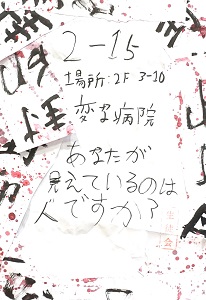 2-15
場所:2F 3-10
変な病院
あなたが
見えているのは
人ですか?